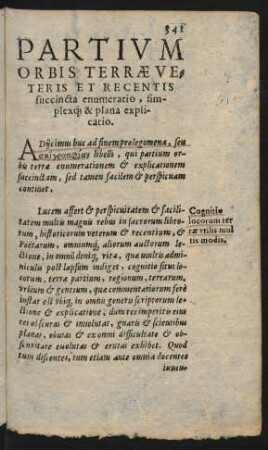 541
PARTIVM
ORBIS TERRÆ VE,
TERIS ET RECENTIS
succincta enumeratio, sim-
plexq́; & plana expli-
catio.
ADijcimus huc ad finem prolegomena, seu
libelli, qui partium or-
bis terræ enumerationem & explicationem
succinctam, sed tamen facilem & perspicuam
continet.
Lucem affert & perspicuitatem & facili-
tatem multis magnis rebus in sacrorum libro-
rum, historicorum veterum & recentium, &
Poëtarum, omniumq́; aliorum auctorum le-
ctione, in omni deniq; vita, quæ multis admi-
niculis post lapsum indiget, cognitio situs lo-
corum, terræ partium, regionum, terrarum,
vrbium & gentium, quæ commentariorum ferè
instar est vbiq; in omni genere scriptorum le-
ctione & explicatione, dum res imperitis eius
rei obscuras & inuolutas, gnaris & scientibus
planas, obuias & ex omni difficultate & ob-
scuritate euolutas & erutas exhibet. Quod
tum discentes, tum etiam ante omnia docentes
inuen-
Cognitio
locorum ter
ræ vtilis mul
tis modis.